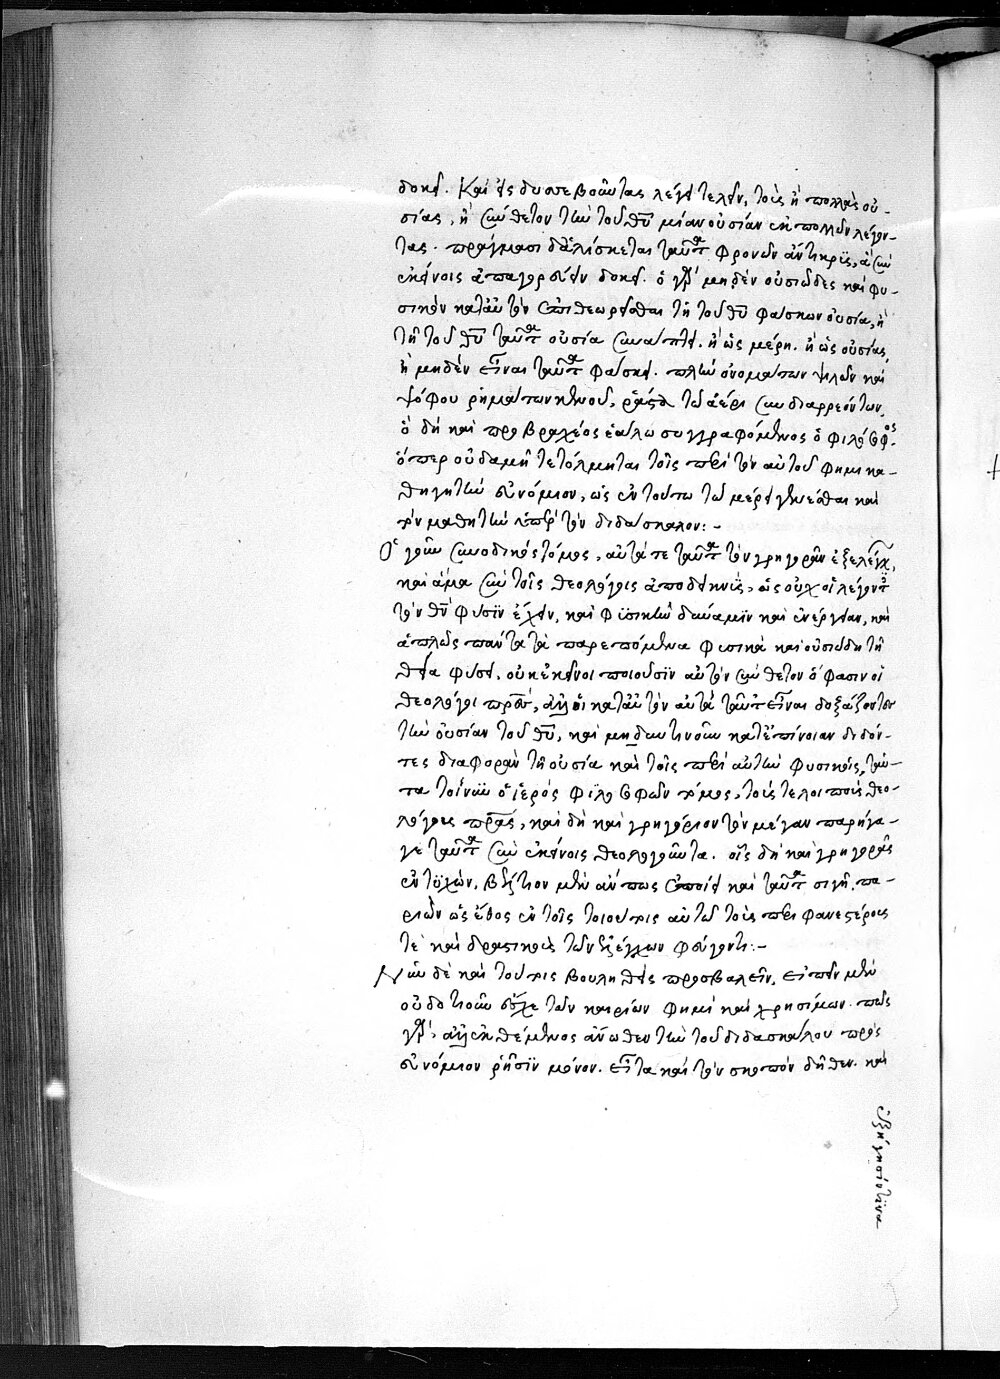 δοκεῖ. Καὶ εἰς δυσσεβοῦντας λέγει τελεῖν, τοὺς ἢ πολλὰς οὐ-
σίας, ἢ σύνθετον τὴν τοῦ θῦ μίαν οὐσίαν ἐκ πολλῶν λέγον-
τας. πράγμασι δ' ἁλίσκεται ταῦτα φρονῶν ἄντικρυς, ἃ σὺν
ἐκείνοις ἀπαγορεύειν δοκεῖ. ὁ γὰρ μηδὲν οὐσιῶδες καὶ φυ-
σικὸν κατ' αὐτὸν ἐπιθεωρεῖσθαι τῇ τοῦ θῦ φάσκων οὐσία, ἢ
τῇ τοῦ θῦ ταῦτα οὐσία συνάπτει. ἢ ὡς μέρη. ἢ ὡς οὐσίας,
ἢ μηδὲν εἶναι ταῦτα φάσκει. πλὴν ὀνομάτων ψιλῶν καὶ
ψόφου ῥημάτων κενοῦ, τῶ ἀέρι συνδιαρρεόντων,
ὃ δὴ καὶ πρὸ βραχέος ἑάλω συγγραφόμενος ὁ φιλόσοφος.
ὅπερ οὐδαμῆ τετόλμηται τοῖς περὶ τὸν αὐτοῦ φημι κα-
θηγητὴν εὐνόμιον, ὡς ἐν τούτω τῶ μέρει γενέσθαι καὶ
τὸν μαθητὴν ὑπὲρ τὸν διδάσκαλον:-
Ὁ γοῦν συνοδικὸς τόμος, αὐτά τε ταῦτα τὸν γρηγορᾶν ἐξελέγχει,
καὶ ἅμα σὺν τοῖς θεολόγοις ἀποδείκνυσιν, ὡς οὐχ οἱ λέγοντες
τὸν θν φύσιν ἔχειν, καὶ φυσικὴν δύναμιν καὶ ἐνέργειαν, καὶ
ἁπλῶς πάντα τὰ παρεπόμενα φυσικὰ καὶ οὐσιώδη τῇ
θεία φύσει, οὐκ ἐκεῖνοι ποιοῦσιν αὐτὸν σύνθετον ὅ φασιν οἱ
θεολόγοι πρες, ἀλλ' οἱ κατ' αὐτὸν αὐτὰ ταῦτ' εἶναι δοξάζοντες
τὴν οὐσίαν τοῦ θῦ, καὶ μηδ' ἡντινοῦν κατ' ἐπίνοιαν διδόν-
τες διαφορὰν τῇ οὐσία καὶ τοῖς περὶ αὐτὴν φυσικοῖς, ταῦ-
τα τοίνυν ὁ ἱερὸς φιλοσοφῶν τόμος, τούς τε λοιποὺς θεο-
λόγους πρας, καὶ δὴ καὶ γρηγόριον τὸν μέγαν παρήγα-
γε ταῦτα σὺν ἐκείνοις θεολογοῦντα. οἷς δὴ καὶ γρηγορᾶς
ἐντυχὼν, βέλτιον μὲν ἄν πως ἐποίει καὶ ταῦτα σιγῆ πα-
ριὼν ὡς ἔθος ἐν τοῖς τοιούτοις αὐτῶ τοὺς περιφανεστέρους
τὲ καὶ δραστικοὺς τῶν ἐλέγχων φεύγοντι:-
Νῦν δὲ καὶ τούτοις βουληθεὶς προσβαλεῖν, εἰπεῖν μὲν
οὐδοτιοῦν ἔσχε τῶν καιρίων φημὶ καὶ χρησίμων. πῶς
γάρ; ἀλλ' ἐκθέμενος ἄνωθεν τὴν τοῦ διδασκάλου πρὸς
εὐνόμιον ῥῆσιν μόνον. εἶτα καὶ τὸν σκοπὸν δῆθεν. καὶ
ἐξήγησίν τινα